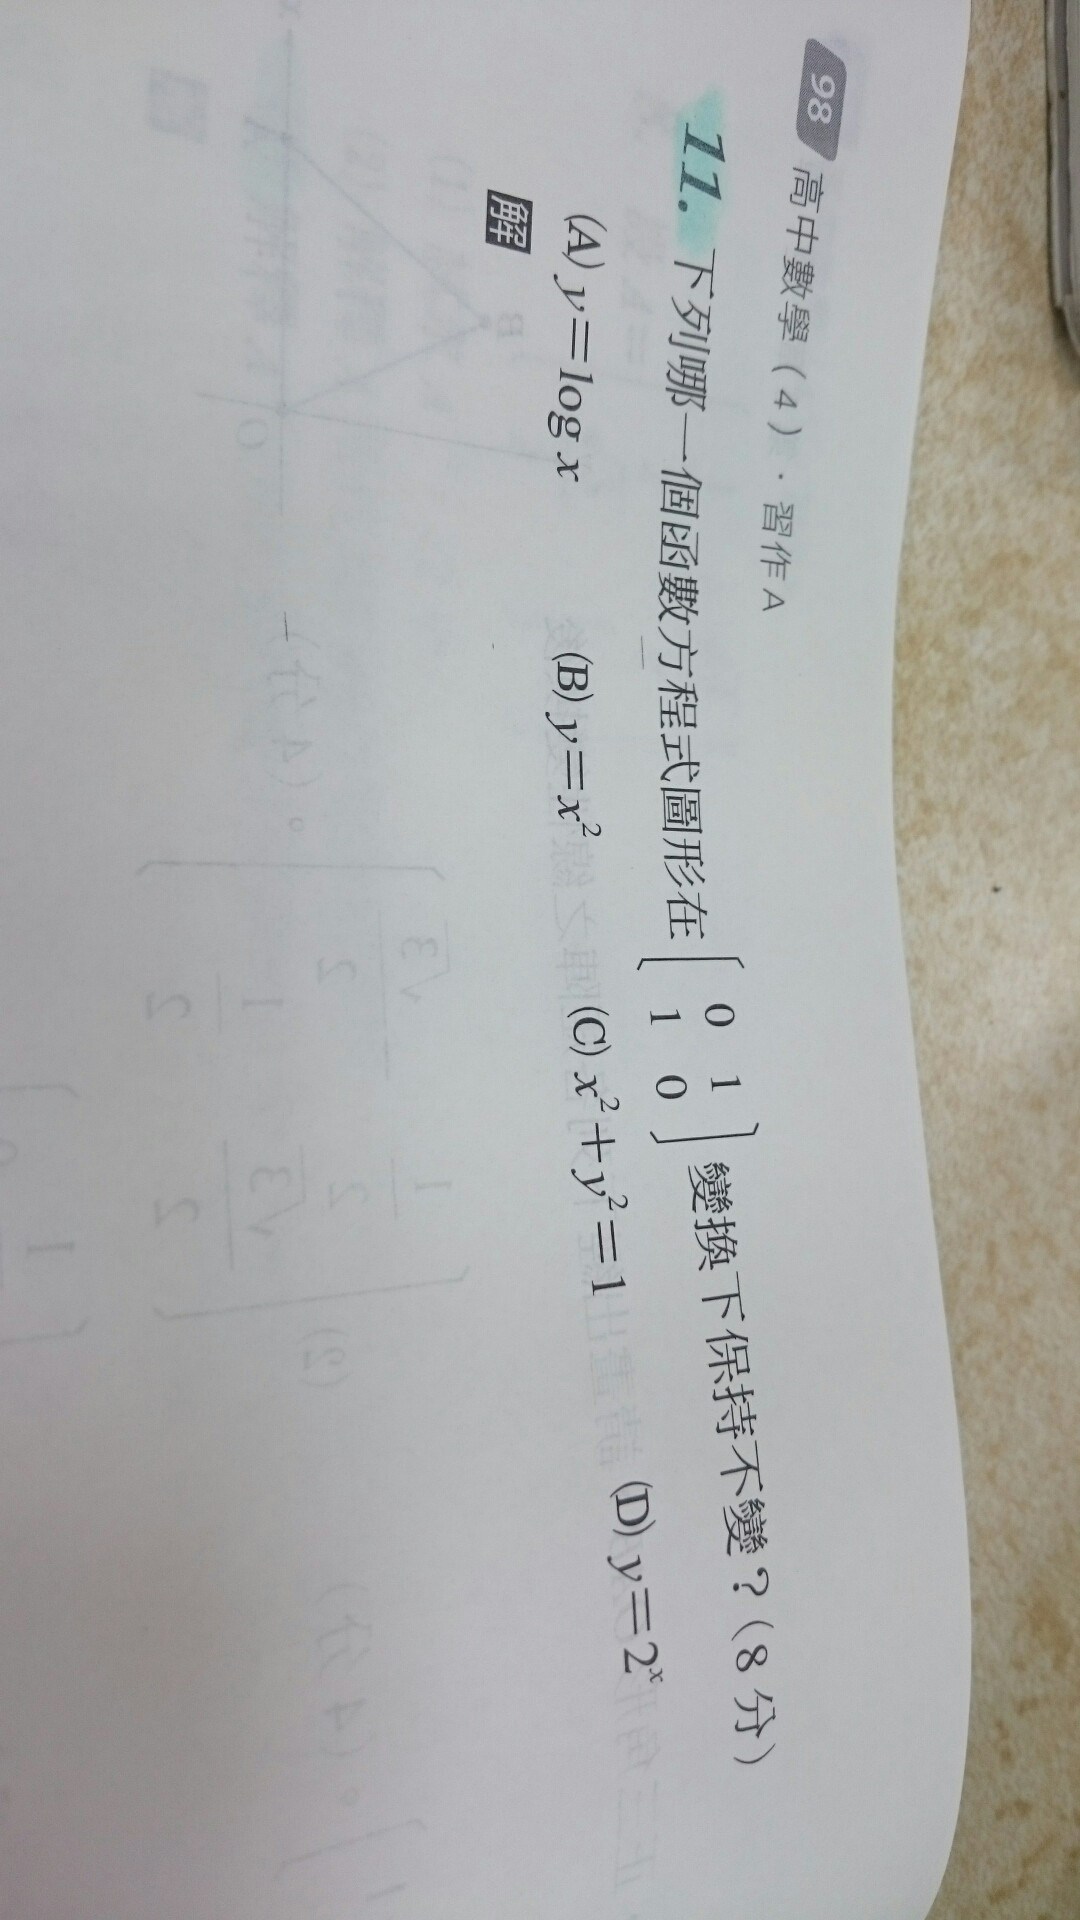 98 高中數學(4)．習作A
11. 下列哪一個函數方程式圖形在 [ 0 1 ; 1 0 ] 變換下保持不變？(8 分)
(A) y=log x (B) y=x² (C) x²+y²=1 (D) y=2ˣ
解